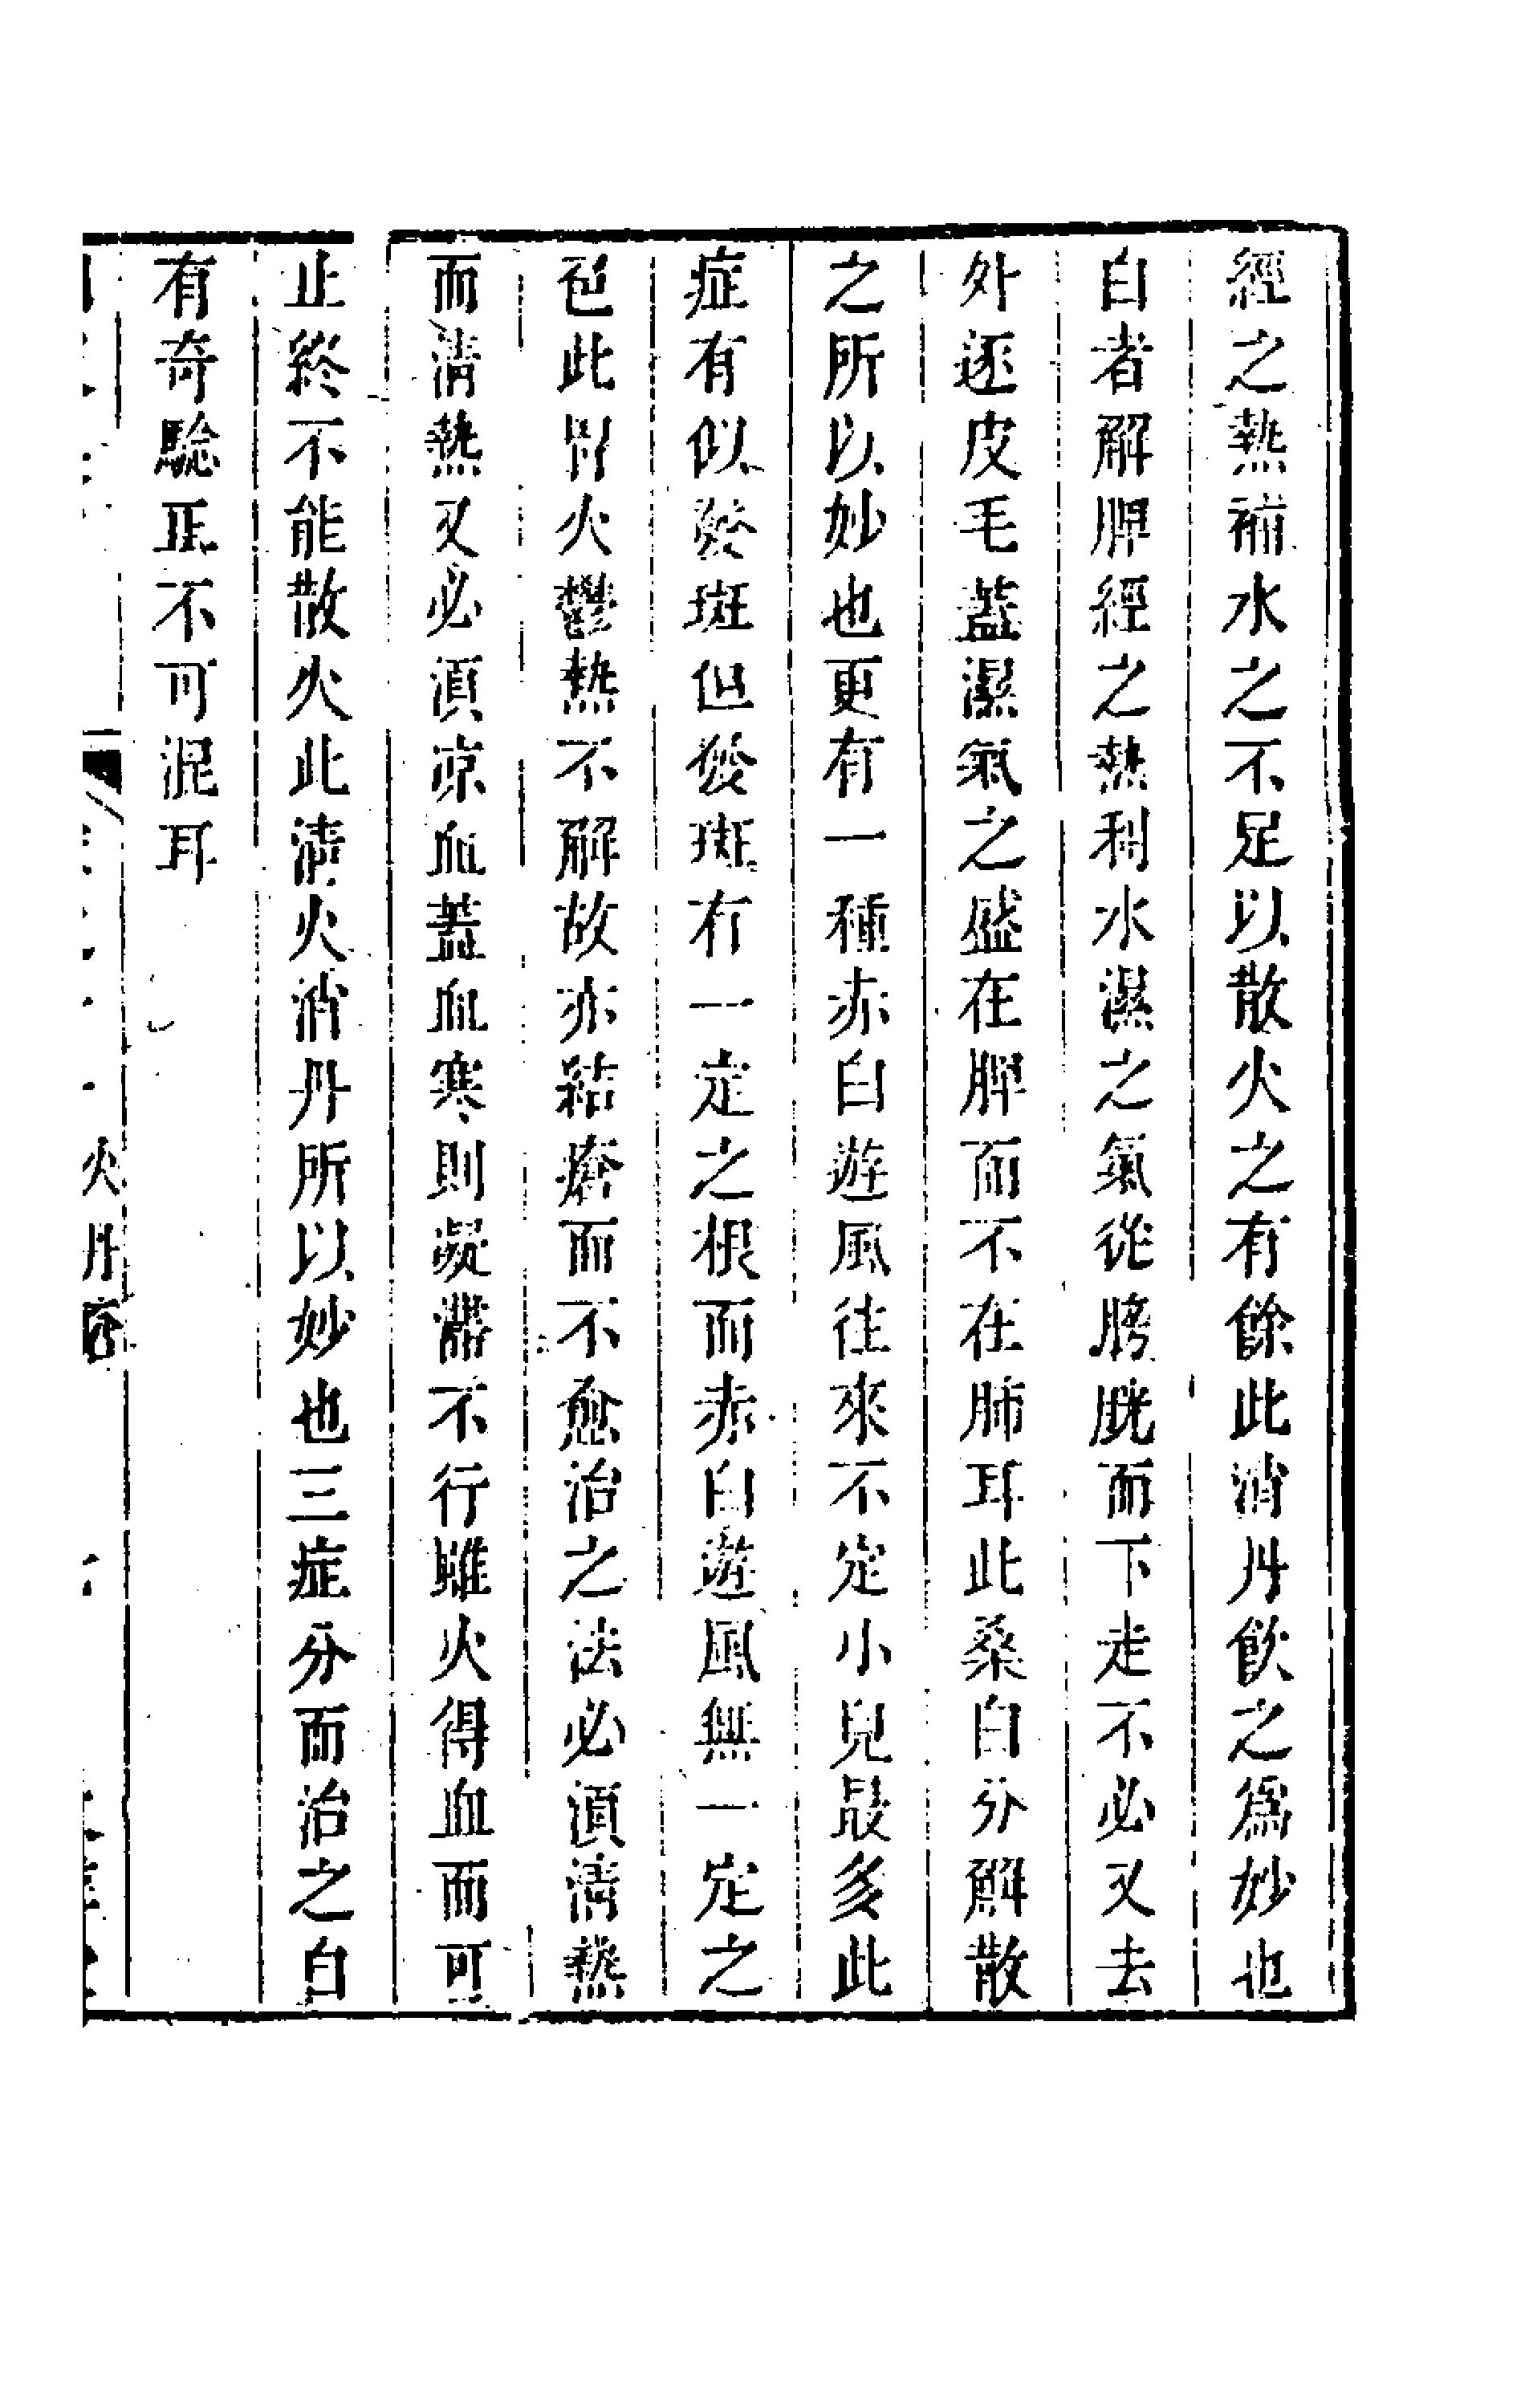 經之熱補水之不足以散火之有餘此消丹飲之爲妙也
白者解脾經之熱利水濕之氣從膀胱而下走不必又去
外逐皮毛蓋濕氣之盛在脾而不在肺耳此桑白分解散
之所以妙也更有一種赤白遊風往來不定小兒最多此
症有似發斑但發斑有一定之根而赤白遊風無一定之
色此胃火鬱熱不解故亦結瘡而不愈治之法必須清熱
而清熱又必須凉血蓋血寒則凝滯不行雖火得血而可
止終不能散火此清火消丹所以妙也三症分而治之自
有奇驗正不可混耳
火丹瘡